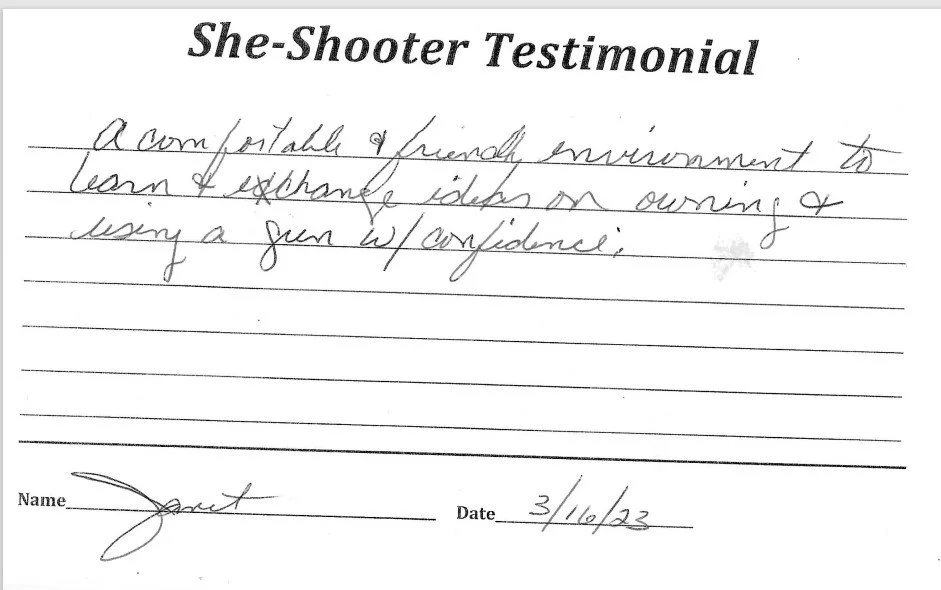 She-Shooter Testimonial
A comfortable & friendly environment to
learn & exchange ideas on owning &
using a gun w/ confidence.
Name Janet
Date 3/16/23